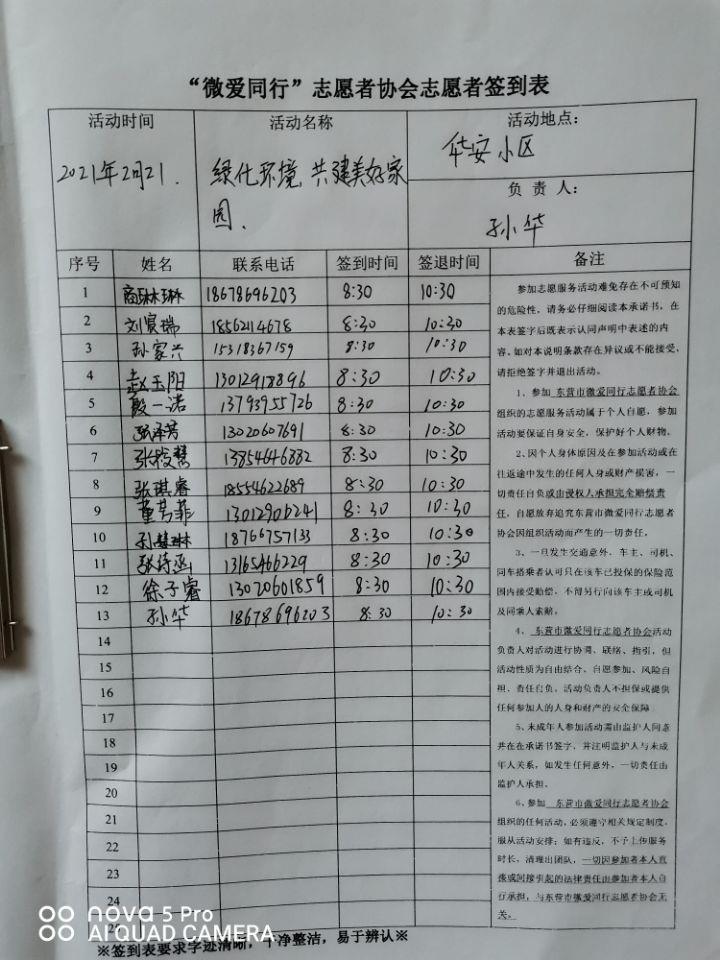 “微爱同行”志愿者协会志愿者签到表
活动时间 活动名称 活动地点：
2021年2月21. 绿化环境,共建美好家 华安小区
园. 负责人：
孙华
序号 姓名 联系电话 签到时间 签退时间 备注
1 商琳琳 18678696203 8:30 10:30
2 刘宸瑞 18562114678 8:30 10:30
3 孙家兴 15318367159 8:30 10:30
4 赵玉阳 13012918896 8:30 10:30
5 殷一诺 13793955726 8:30 10:30
6 张泽芳 13020607691 8:30 10:30
7 13854646882 8:30 10:30
8 张琪睿 18554622689 8:30 10:30
9 董芳菲 13012906241 8:30 10:30
10 18766757133 8:30 10:30
11 张诗涵 13165466229 8:30 10:30
12 徐子睿 13020601859 8:30 10:30
13 孙华 18678696203 8:30 10:30
14
15
16
17
18
19
20
21
22
23
24
25
参加志愿服务活动难免存在不可预知
的危险性，请务必仔细阅读本承诺书，在
本表签字后既表示认同声明中表述的内
容。如对本说明条款存在异议或不能接受，
请拒绝签字并退出活动。
1、参加 东营市微爱同行志愿者协会
组织的志愿服务活动属于个人自愿，参加
活动要保证自身安全，保护好个人财物。
2、因个人身体原因及在参加活动或在
往返途中发生的任何人身或财产损害，一
切责任自负或由侵权人承担完全赔偿责
任，自愿放弃追究东营市微爱同行志愿者
协会因组织活动而产生的一切责任。
3、一旦发生交通意外，车主、司机、
同车搭乘者认可只在该车已投保的保险范
围内接受赔偿，不得另行向该车主或司机
及同乘人索赔。
4、 东营市微爱同行志愿者协会活动
负责人对活动进行协调、联络、指引，但
活动性质为自由结合、自愿参加、风险自
担、责任自负，活动负责人不担保或提供
任何参加人的人身和财产的安全保障
5、未成年人参加活动需由监护人同意
并在在承诺书签字，并注明监护人与未成
年人关系，如发生任何意外，一切责任由
监护人承担。
6、参加 东营市微爱同行志愿者协会
组织的任何活动，必须遵守相关规定制度，
服从活动安排；如有违反，不予上传服务
时长，清理出团队，一切因参加者本人直
接或间接引起的法律责任由参加者本人自
行承担，与东营市微爱同行志愿者协会无
关。
※签到表要求字迹清晰，干净整洁，易于辨认※
nova 5 Pro
AI QUAD CAMERA